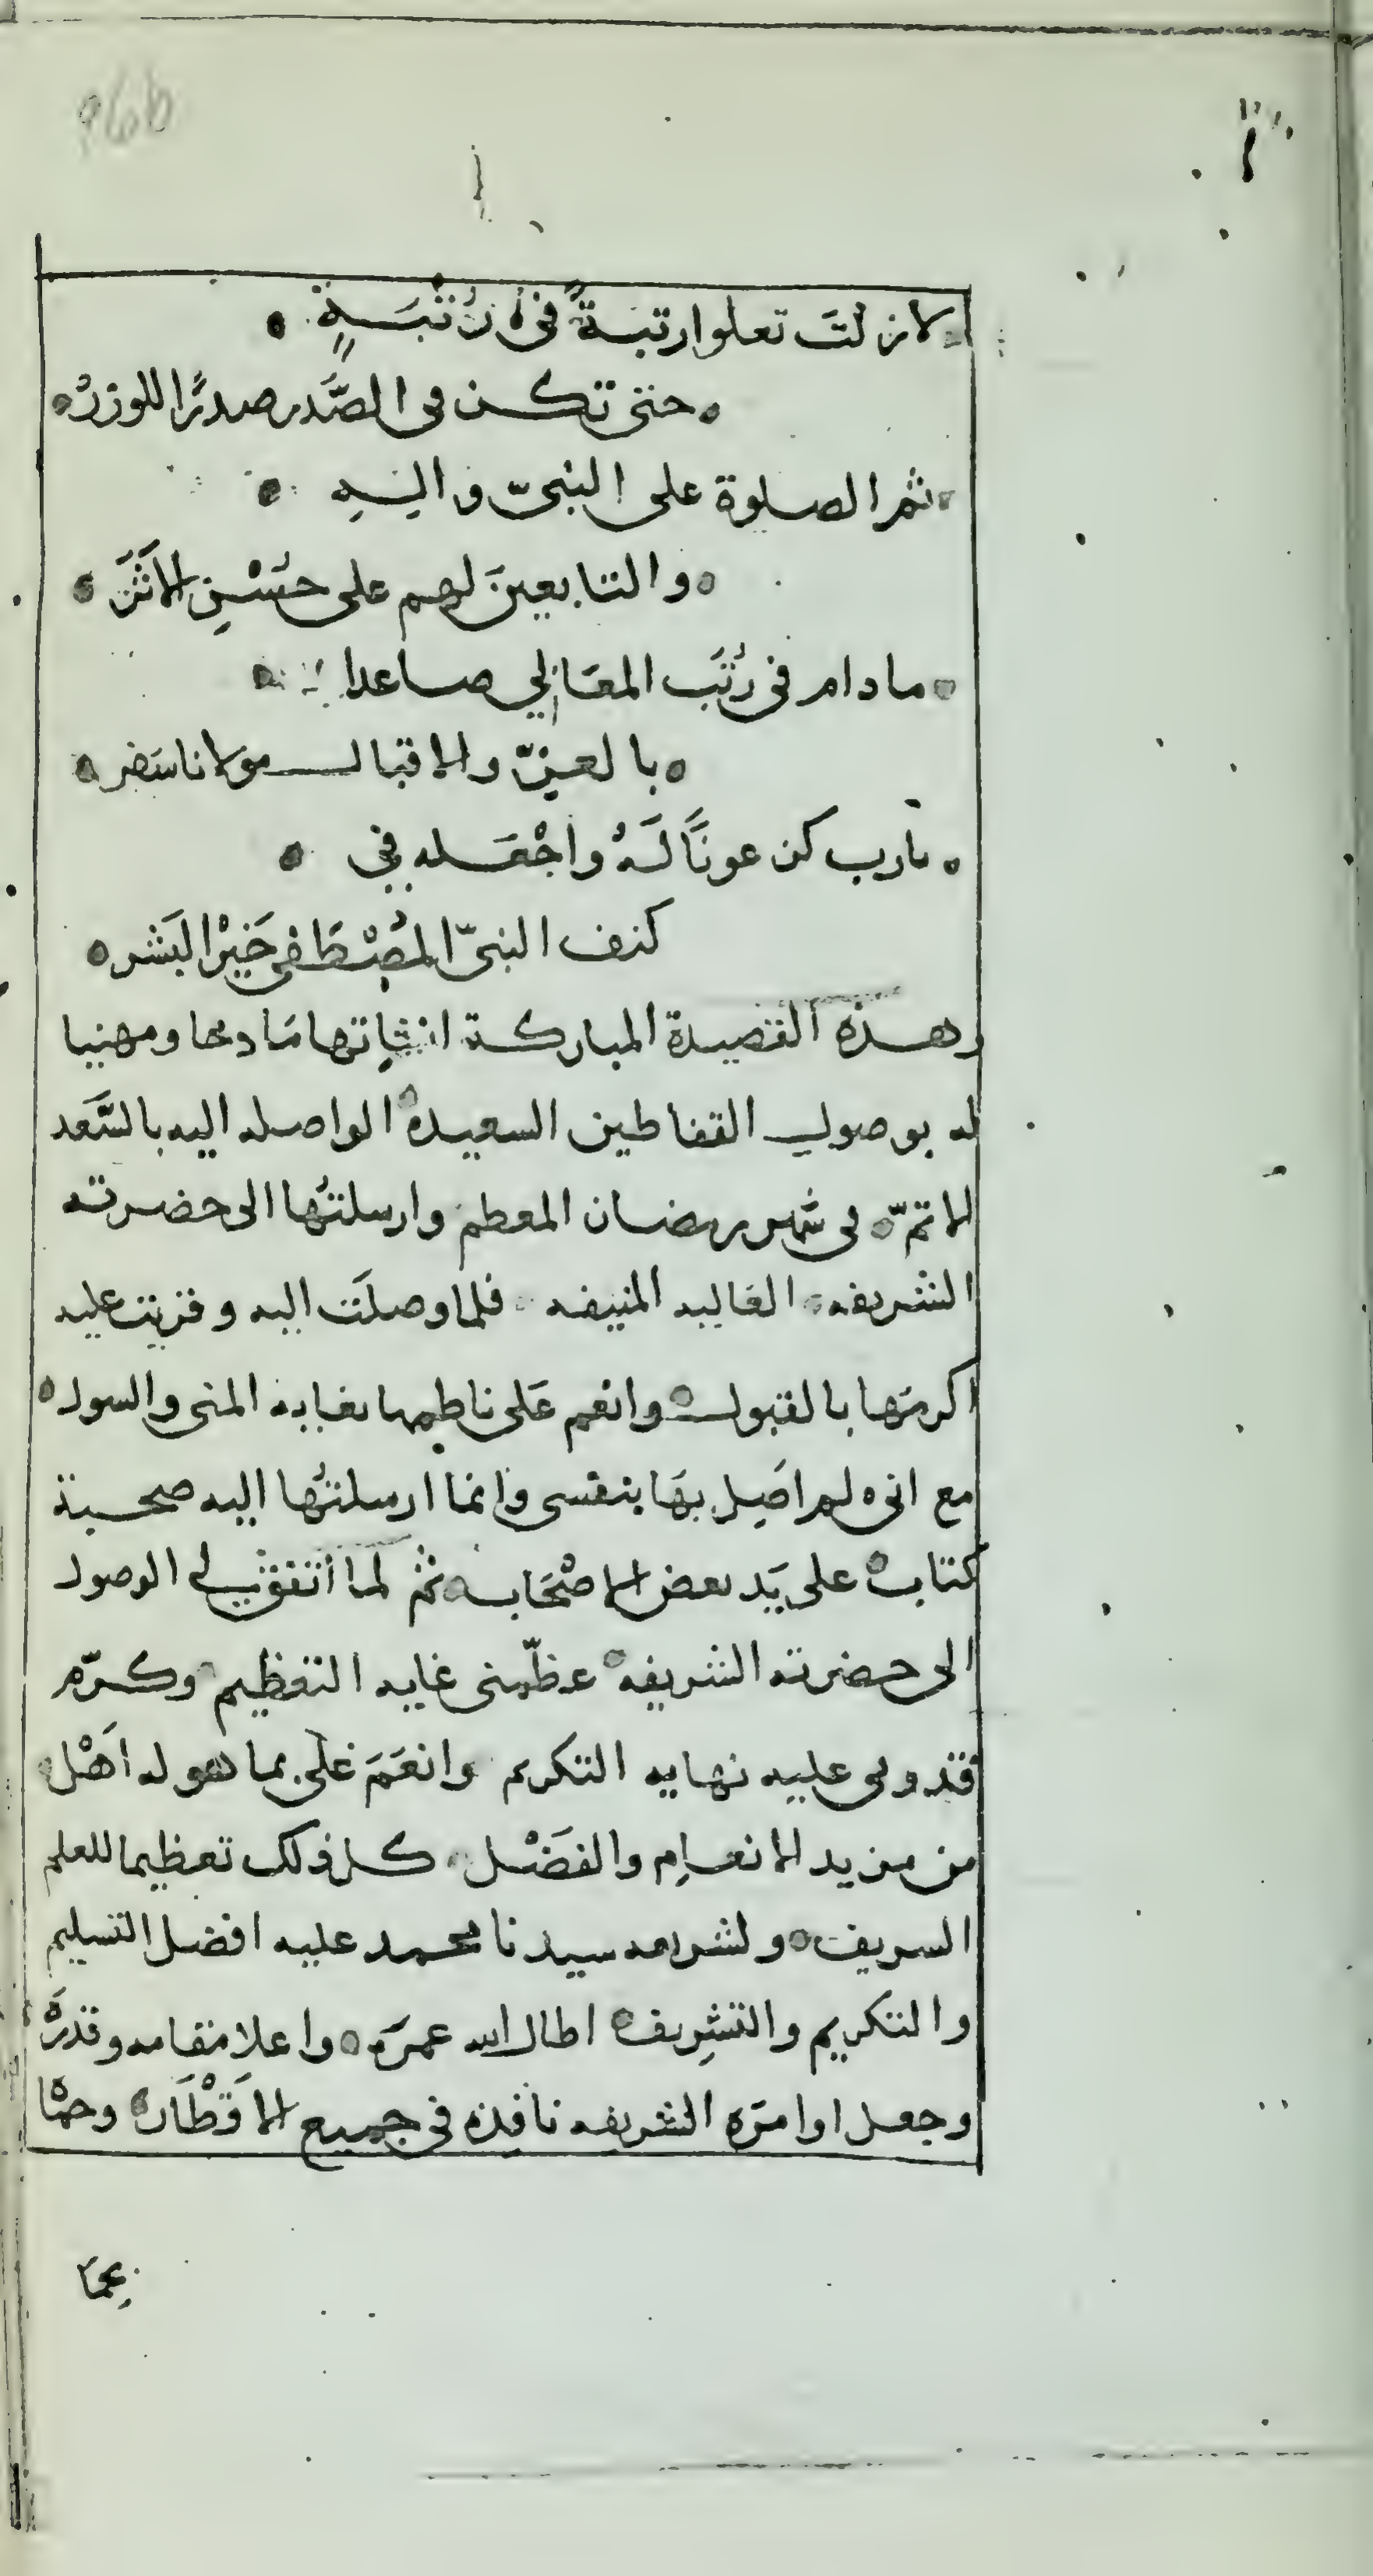 96b
لازلتَ تعلوا رتبةً في رُتْبَةٍ
حتى تكن في الصَّدر صدرًا للوزرْ
ثم الصلوة على النبيّ واله
والتابعينَ لهم على حُسْنِ الاَثَرْ
مادام في رُتَب المعَالي صاعدا
بالعزّ والاقبال مولانا سَفر
يارب كن عونًا لَهُ واجْعَله في
كنف النبيّ المُصْطَفى خَيْر البَشر
وهذه القصيدة المباركة انشاتها مَادحا ومهنيا
له بوصول القفاطين السعيدة الواصله اليه بالسَّعد
الاتمّ في شهر رمضان المعظم وارسلتُها الى حضرته
الشريفه العَاليه المنيفه فلما وصلَت اليه وقريت عليه
اكرمَها بالقبول وانعم عَلى ناظمها بغاية المنى والسول
مع انى لم اصِل بهَا بنفسى وانما ارسلتُها اليه صحبة
كتاب على يَد بعض الاصْحَاب ثم لما أتفق لي الوصول
الى حضرته الشريفه عظّمنى غايه التعظيم وكرّم
قدومى عليه نهايه التكريم وانعَمَ عَلى بما هو له اَهْل
من مزيد الانعام والفَضْل كل ذلك تعظيما للعلم
الشريف ولشرعه سيدنا محمد عليه افضل التسليم
والتكريم والتشريف اطال الله عمرَه واعلا مقامه وقدرَه
وجعل اوامرَه الشريفه نافِذه في جميع الاَقْطَار وحمَا
بحمَا